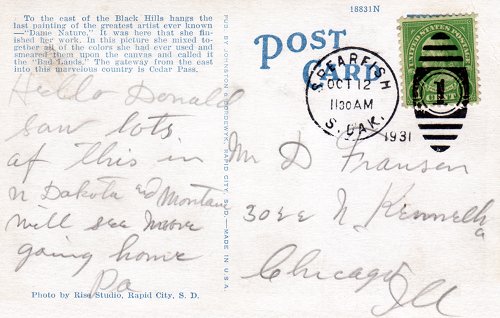 18831N
To the east of the Black Hills hangs the
last painting of the greatest artist ever known
—"Dame Nature." It was here that she fin-
ished her work. In this picture she mixed to-
gether all of the colors she had ever used and
smeared them upon the canvas and called it
the "Bad Lands." The gateway from the east
into this marvelous country is Cedar Pass.
Hello Donald
saw lots
of this in
N Dakota and Montana
will see more
going home
Pa
Photo by Rise Studio, Rapid City, S. D.
PUB. BY JOHNSTON & BORDEWYK, RAPID CITY, S.D.—MADE IN U.S.A.
POST
CARD
SPEARFISH
OCT 12
1130 AM
S. DAK.
1931
UNITED STATES POSTAGE
1
CENT
Mr D Fransen
N
Chicago
Ill